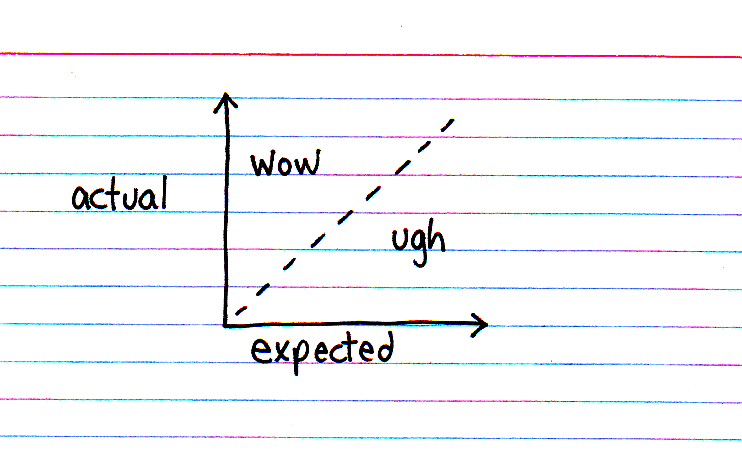 wow
actual
ugh
expected